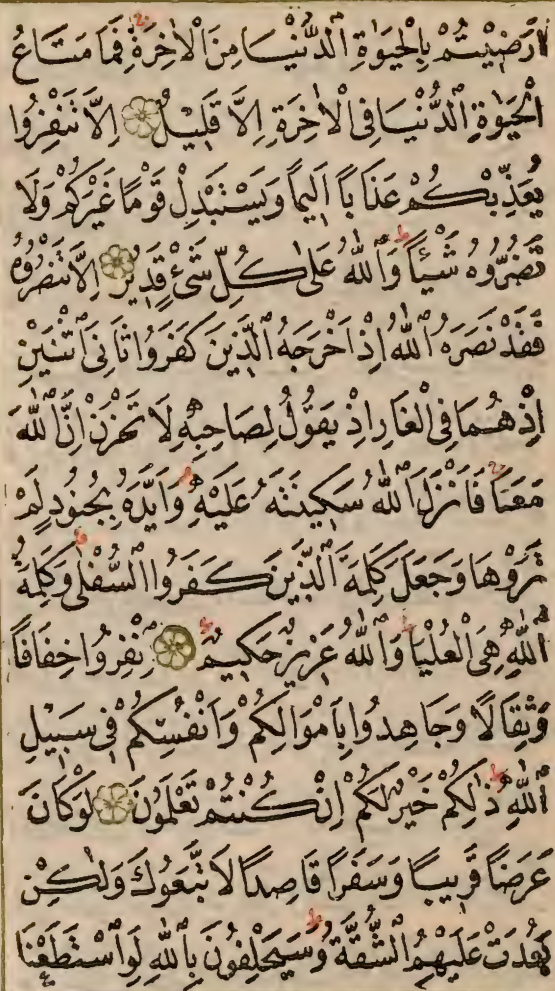 اَرَضٖيتُمْ بِالْحَيٰوةِ الدُّنْيَا مِنَ الْاٰخِرَةِ فَمَا مَتَاعُ
الْحَيٰوةِ الدُّنْيَا فِى الْاٰخِرَةِ اِلَّا قَلِيلٌ اِلَّا تَنْفِرُوا
يُعَذِّبْكُمْ عَذَابًا اَلِيمًا وَيَسْتَبْدِلْ قَوْمًا غَيْرَكُمْ وَلَا
تَضُرُّوهُ شَيْئًا وَاللّٰهُ عَلٰى كُلِّ شَىْءٍ قَدِيرٌ اِلَّا تَنْصُرُوهُ
فَقَدْ نَصَرَهُ اللّٰهُ اِذْ اَخْرَجَهُ الَّذِينَ كَفَرُوا ثَانِىَ اثْنَيْنِ
اِذْ هُمَا فِى الْغَارِ اِذْ يَقُولُ لِصَاحِبِهٖ لَا تَحْزَنْ اِنَّ اللّٰهَ
مَعَنَا فَاَنْزَلَ اللّٰهُ سَكِينَتَهُ عَلَيْهِ وَاَيَّدَهُ بِجُنُودٍ لَمْ
تَرَوْهَا وَجَعَلَ كَلِمَةَ الَّذِينَ كَفَرُوا السُّفْلٰى وَكَلِمَةُ
اللّٰهِ هِىَ الْعُلْيَا وَاللّٰهُ عَزِيزٌ حَكِيمٌ اِنْفِرُوا خِفَافًا
وَثِقَالًا وَجَاهِدُوا بِاَمْوَالِكُمْ وَاَنْفُسِكُمْ فِى سَبِيلِ
اللّٰهِ ذٰلِكُمْ خَيْرٌ لَكُمْ اِنْ كُنْتُمْ تَعْلَمُونَ لَوْ كَانَ
عَرَضًا قَرِيبًا وَسَفَرًا قَاصِدًا لَاتَّبَعُوكَ وَلٰكِنْ
بَعُدَتْ عَلَيْهِمُ الشُّقَّةُ وَسَيَحْلِفُونَ بِاللّٰهِ لَوِ اسْتَطَعْنَا